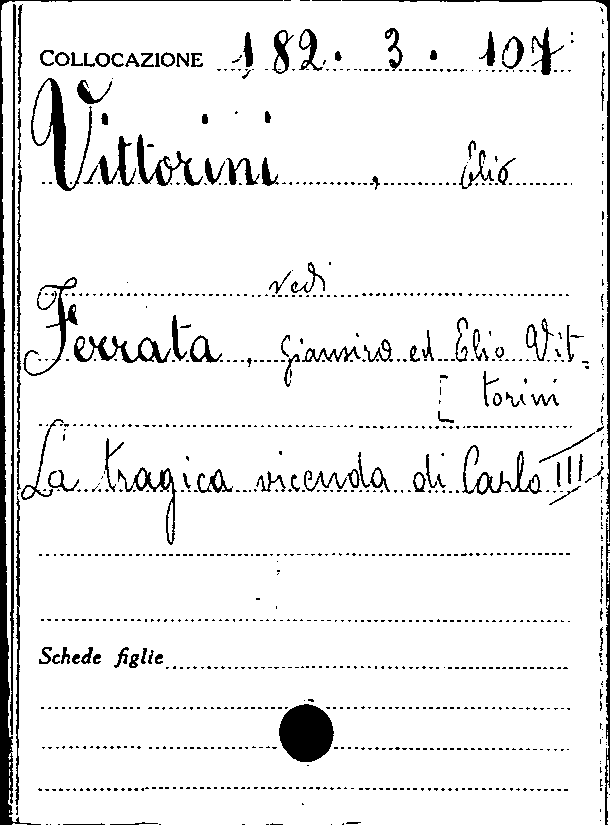 COLLOCAZIONE 182. 3. 107
Vittorini, Elio
vedi
Ferrata, Giansiro ed Elio Vit-
[torini
La tragica vicenda di Carlo III
Schede figlie